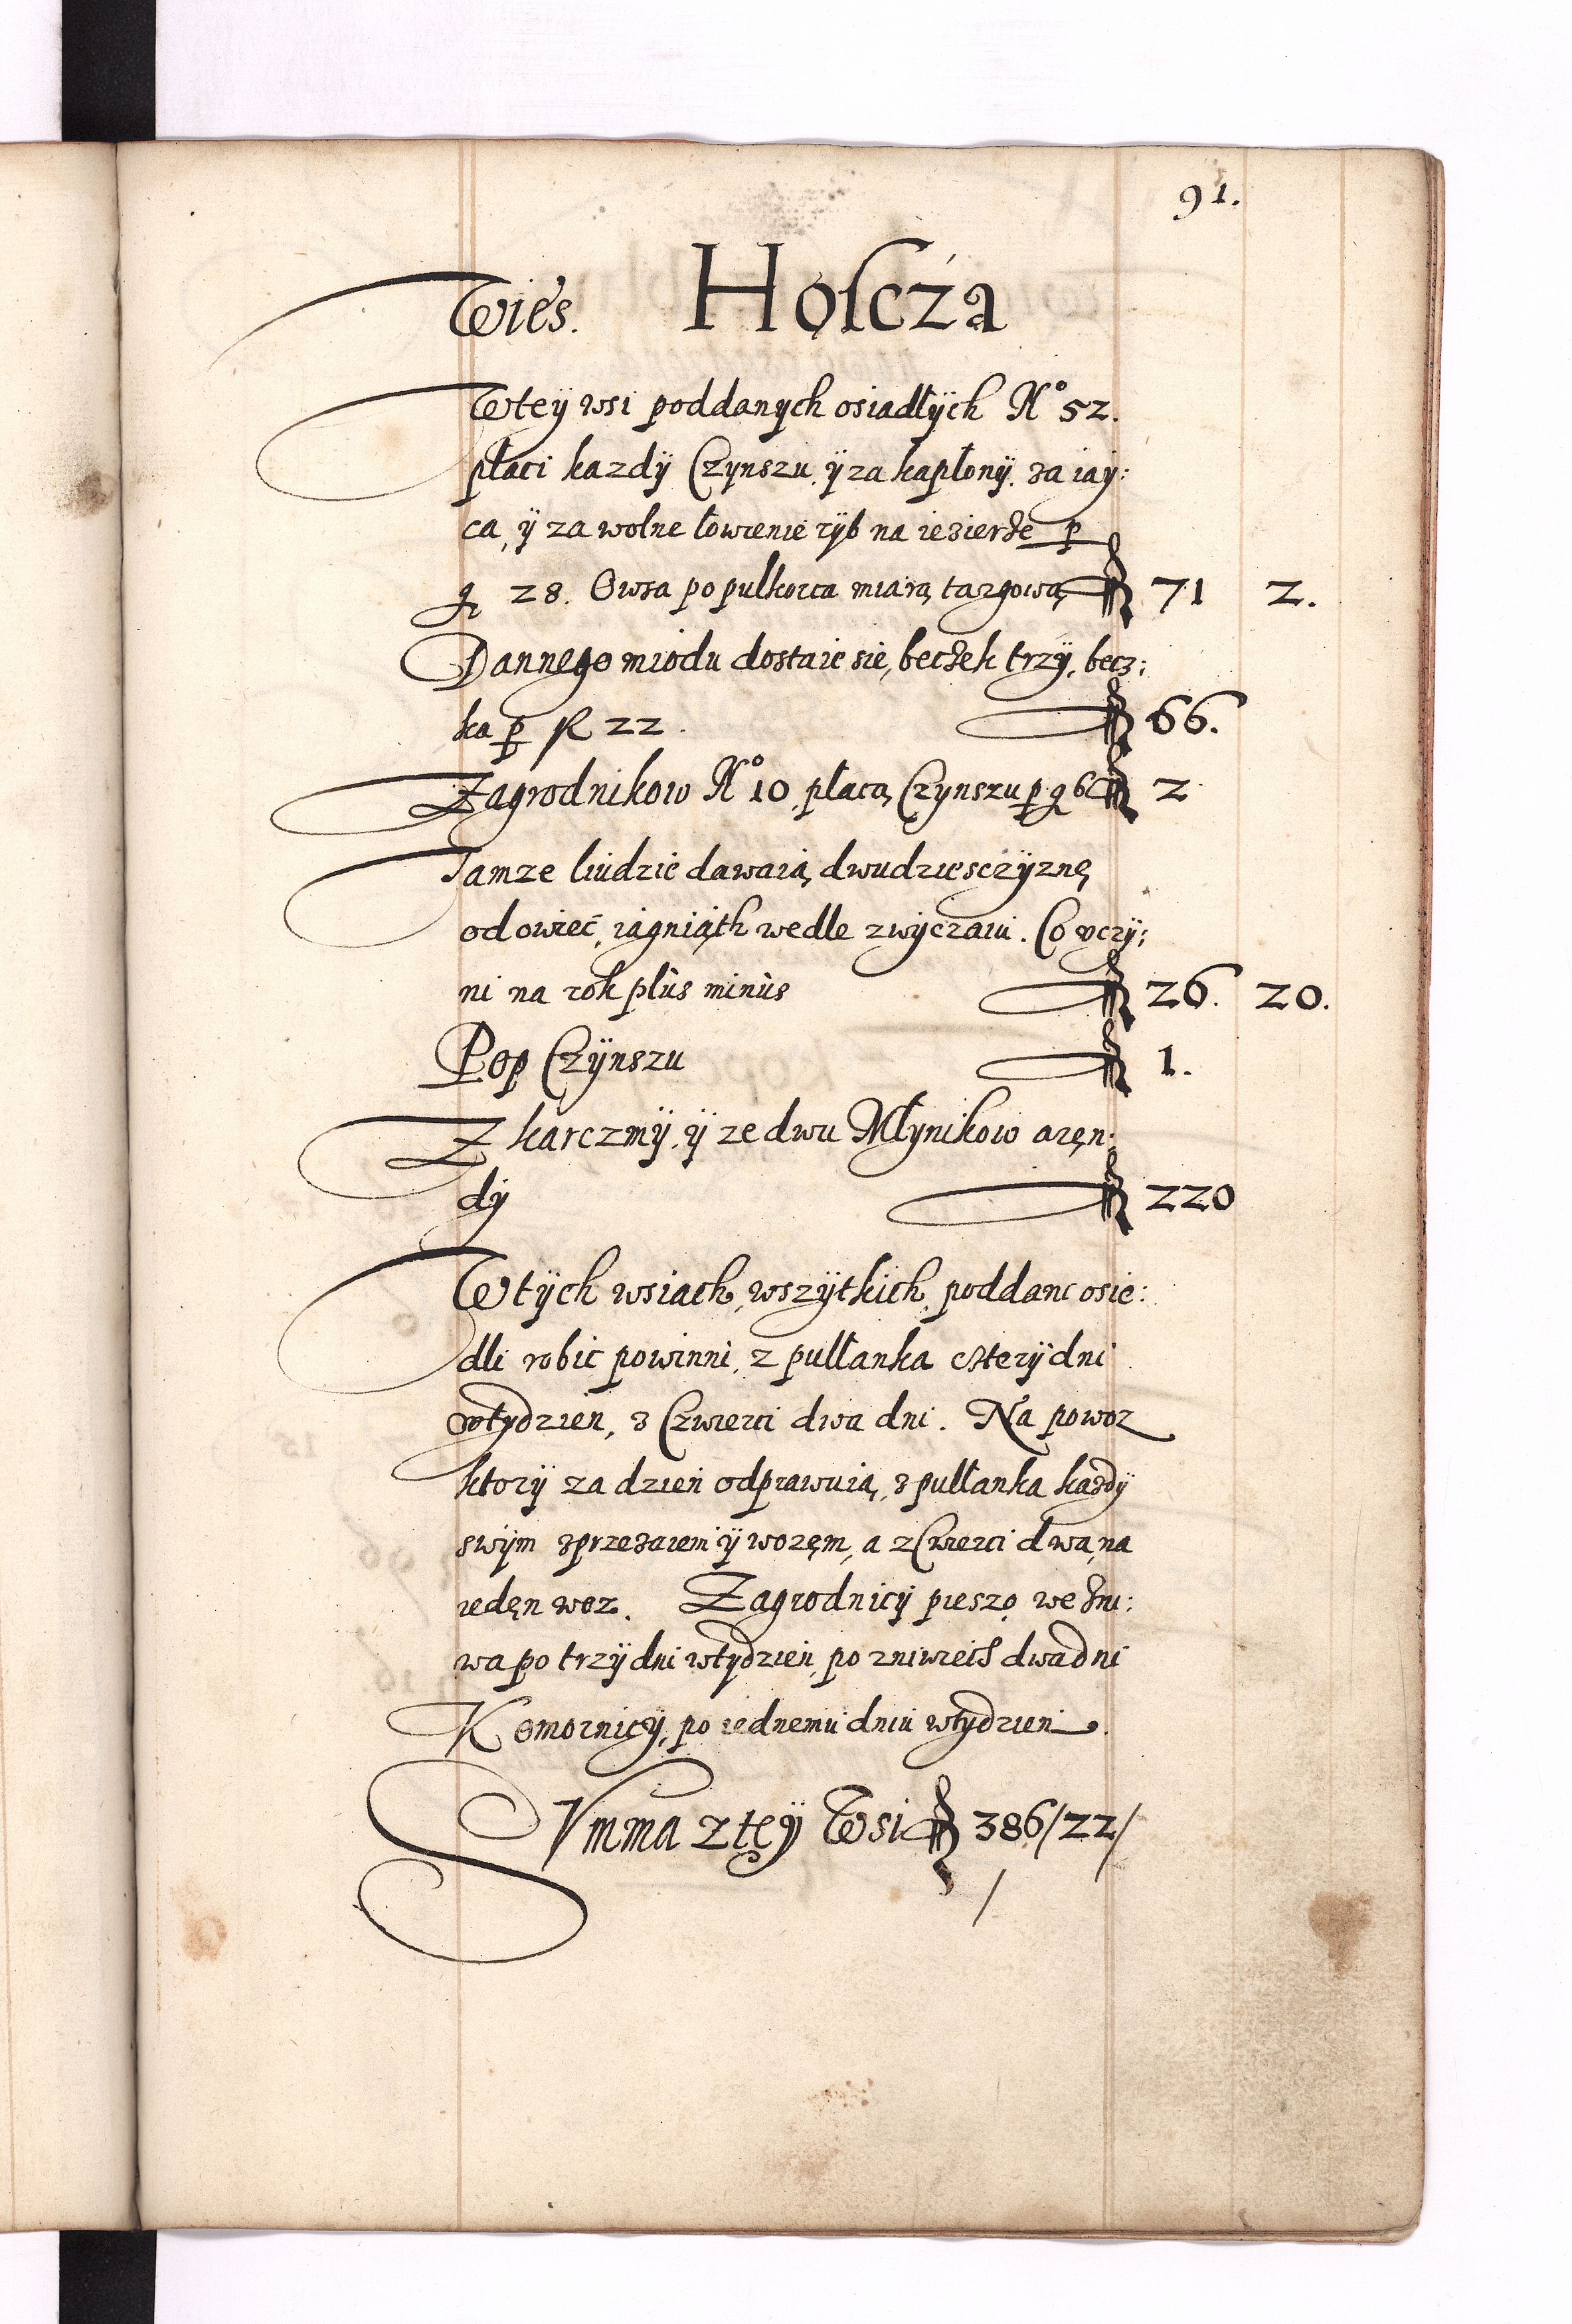 91.
Wieś. Hoſcza
W tey wsi poddanÿch osiadłÿch No 52.
płaci kazdÿ Czÿnszu, ÿ za kapłonÿ, za iaÿ:
ca, ÿ za wolne łowienie rÿb na iezierze p
g 28. Owsa po pulkorca miarą targową f 71 2.
Dannego miodu dostaie się, beczek trzÿ, becz:
ka p fl 22. f 66.
Zagrodnikow No 10, płacą Czynszu p g 6 f 2
Tamze liudzie dawaią dwudziesczÿznę
od owiec, iagniąth wedle zwÿczaiu. Co vczÿ:
ni na rok plùs minùs f 26. 20.
Pop Czÿnszu f 1.
Z karczmÿ, ÿ ze dwu Młynikow aręn:
dÿ f 220
W tÿch wsiach, wszÿtkich poddani osie:
dli robić powinni, z pułłanka czterÿ dni
w tÿdzień, z Czwierci dwa dni. Na powoz
ktorÿ za dzień odprawuią, z pułłanka kazdÿ
swÿm zprzezaiem ÿ wozęm, a z Cwierci dwa, na
iedęn woz. Zagrodnicÿ pieszo we zni:
wa po trzÿ dni w tÿdzień, po zniwiech dwa dni
Komornicÿ, po iednemu dniu w tÿdzień.
SVmma z tęÿ Wsi f 386/22/
/